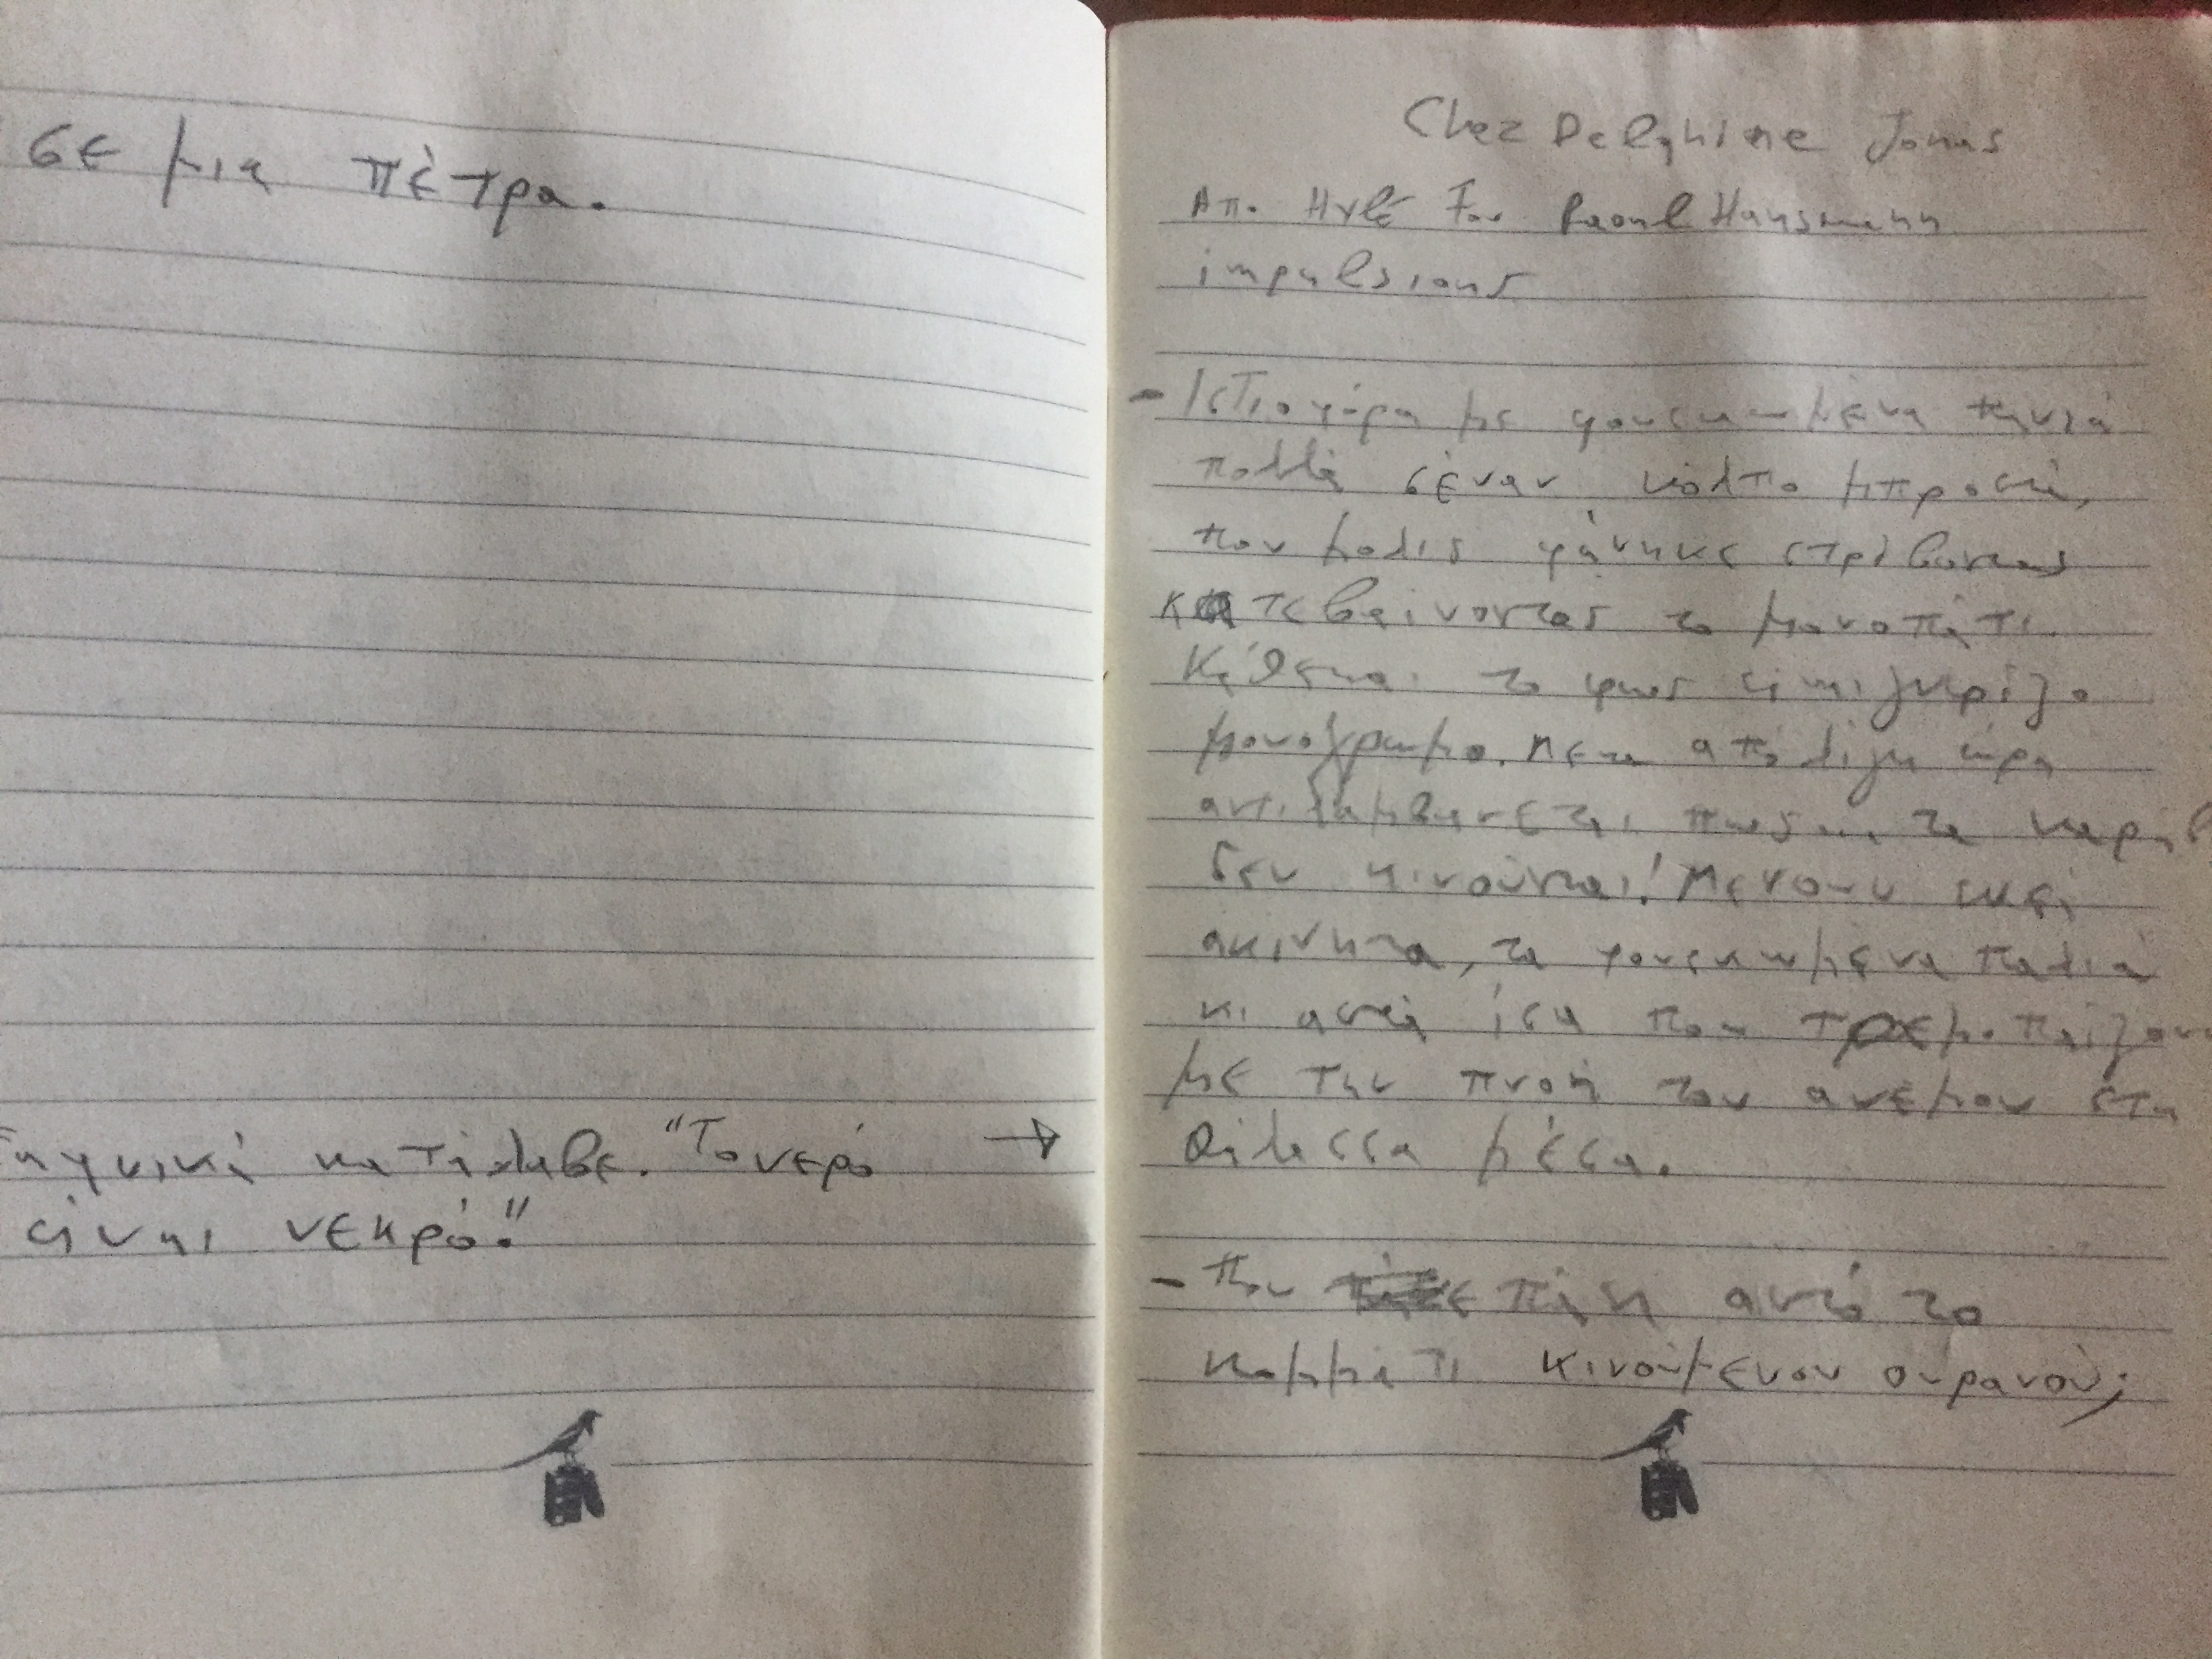 σε μια πέτρα.
Ξαφνικά κατάλαβε. "Το νερό →
είναι νεκρό."
Chez Delphine Jonas
Απο Hylé του Raoul Hausmann
impulsions
- Ιστιοφόρα με φουσκωμένα πανιά
πολλά σ'έναν κόλπο μπροστά,
που μολις φάνηκε στρίβοντας
κατεβαίνοντας το μονοπάτι.
Κάθεται το φως είναι γκρίζο
μονόχρωμο. Μετα από λίγη ώρα
αντιλαμβανεται πως τα καράβ
δεν κινούνται! Μένουν εκεί
ακίνητα, τα φουσκωμένα πανιά
κι αυτά ίσα που τρεμοπαίζου
με την πνοή του ανέμου στη
θάλασσα μέσα.
- Που πάει αυτό το
κομμάτι κινούμενου ουρανού;